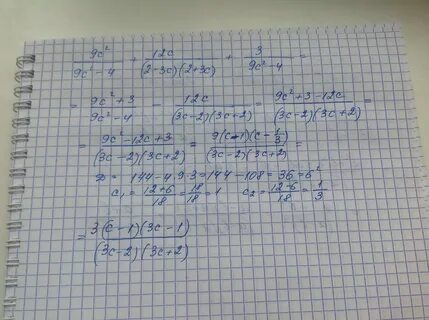 9c²/(9c²-4) + 12c/((2-3c)(2+3c)) + 3/(9c²-4) =
= (9c²+3)/(9c²-4) - 12c/((3c-2)(3c+2)) = (9c²+3-12c)/((3c-2)(3c+2)) =
= (9c²-12c+3)/((3c-2)(3c+2)) = 9(c-1)(c-1/3)/((3c-2)(3c+2)) =
D = 144-4·9·3 = 144-108 = 36 = 6²
c₁ = (12+6)/18 = 18/18 = 1 c₂ = (12-6)/18 = 1/3
= 3(c-1)(3c-1)/((3c-2)(3c+2))